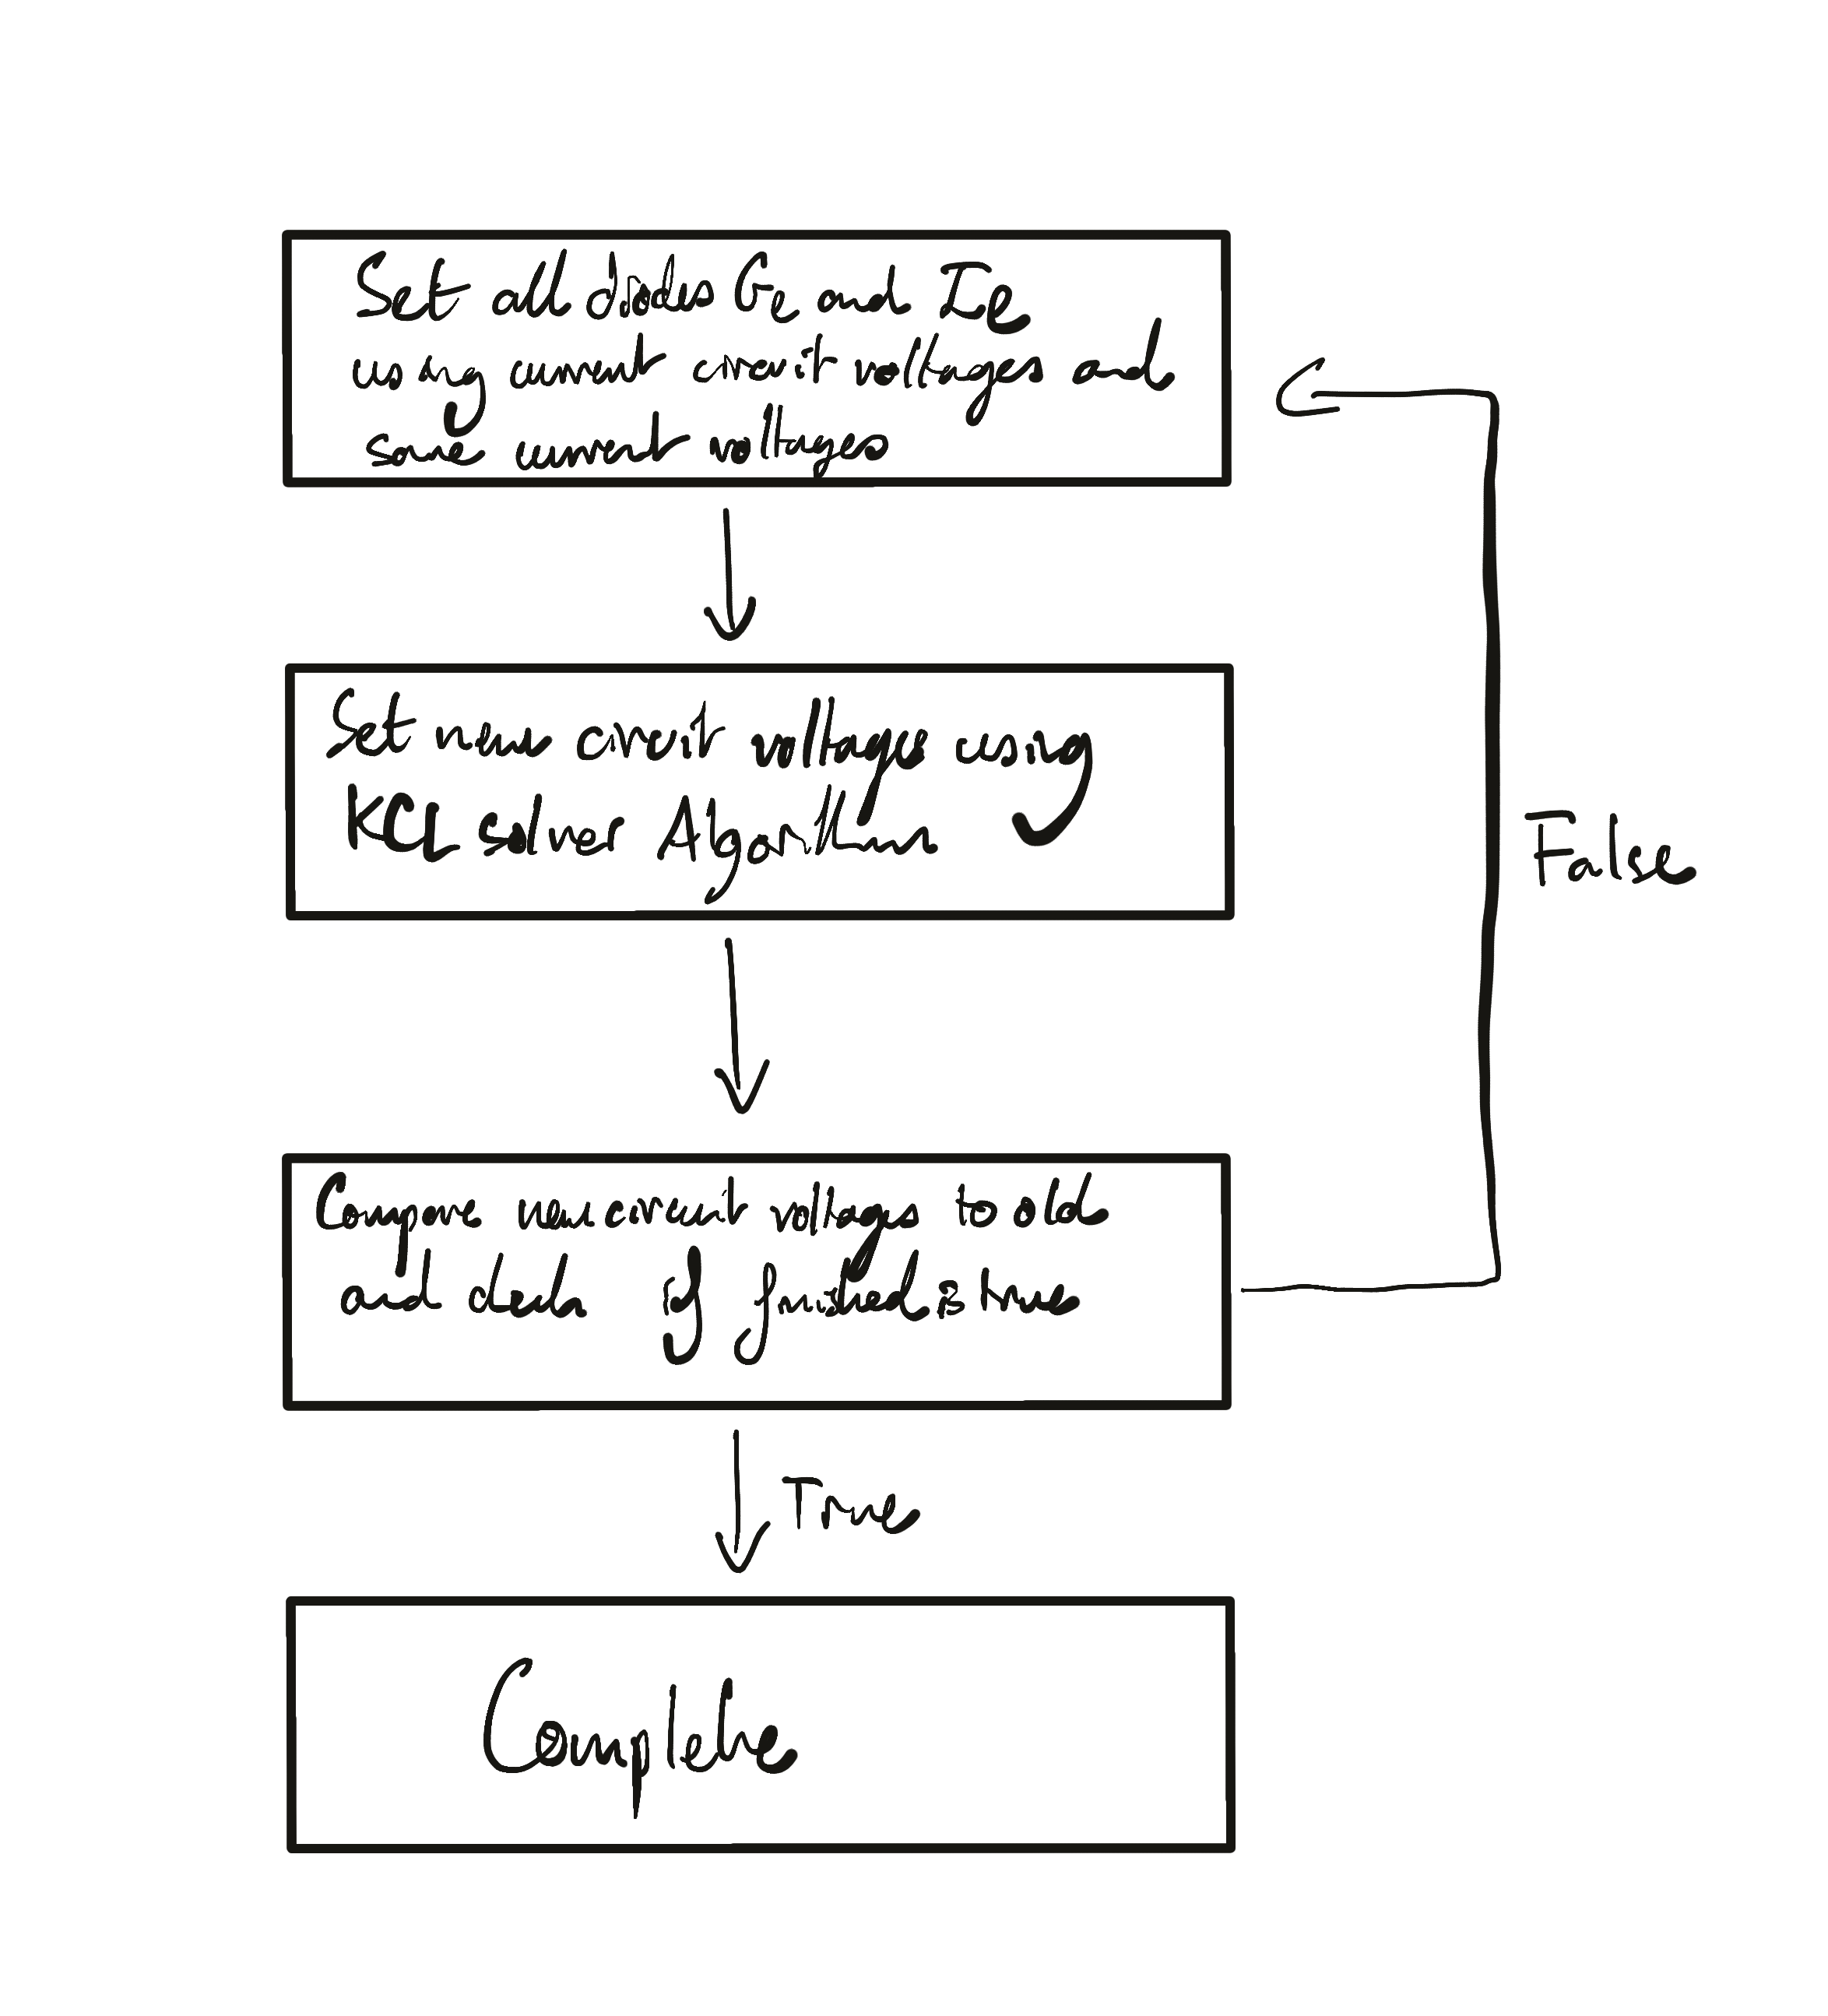 Set all diodes Ge and Ie
using current circuit voltages and
save current voltages
Set new circuit voltages using
KCL solver Algorithm
False
Compare new circuit voltages to old
and check if finished is true
True
Complete